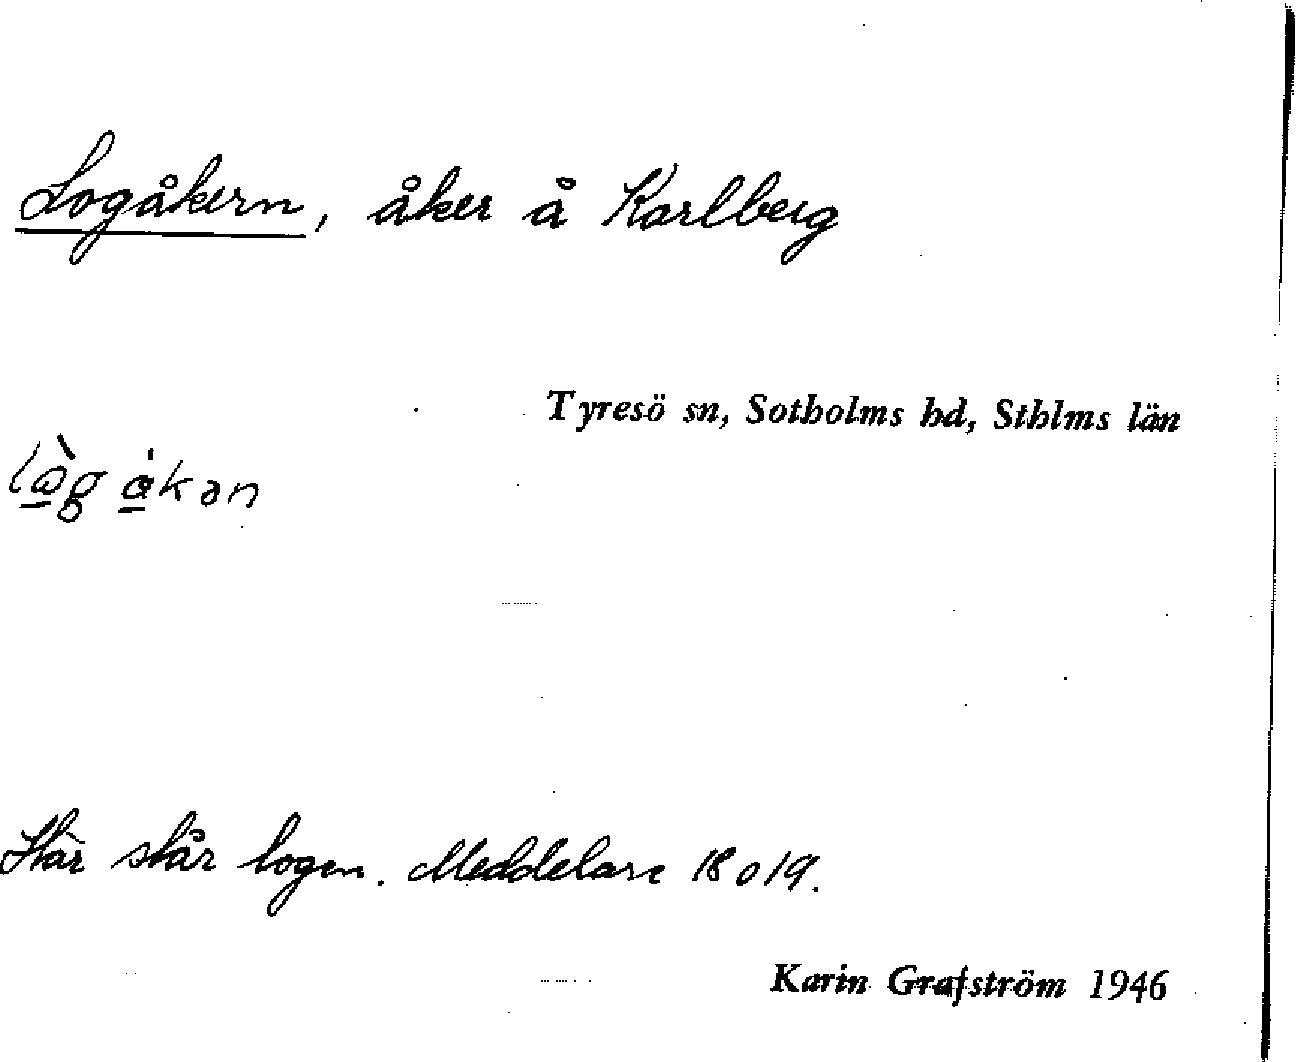 Logåkern, åker å Karlberg
Tyresö sn, Sotholms hd, Sthlms län
Här står logen. Meddelare 18 o 19.
Karin Grafström 1946